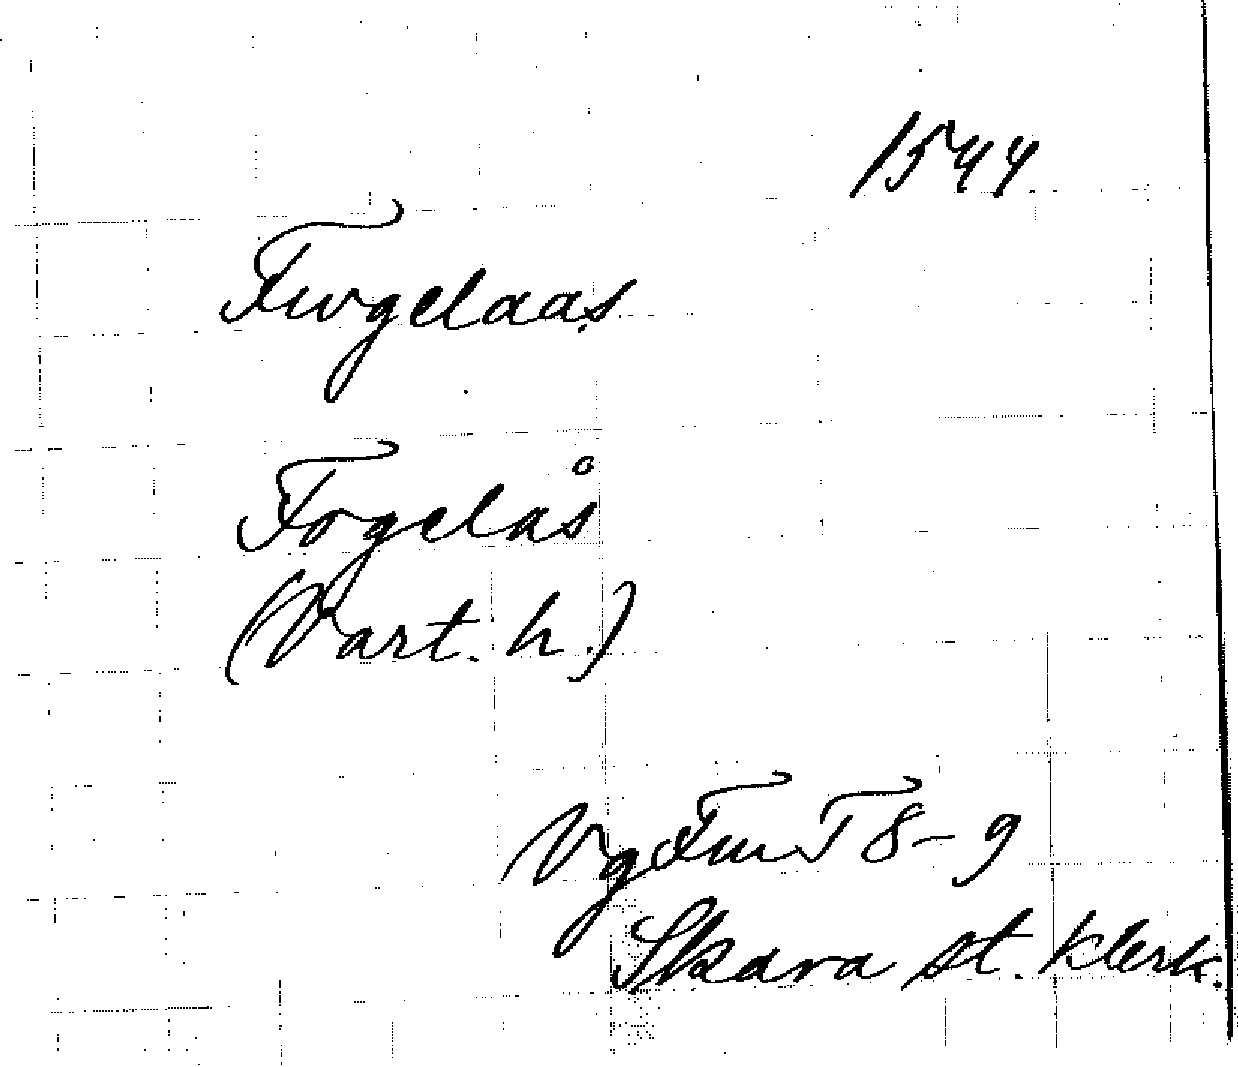 1544
Fwgelaas
Fogelås
(Vart. h.)
VgFmT 8-9
Skara st. klerk.